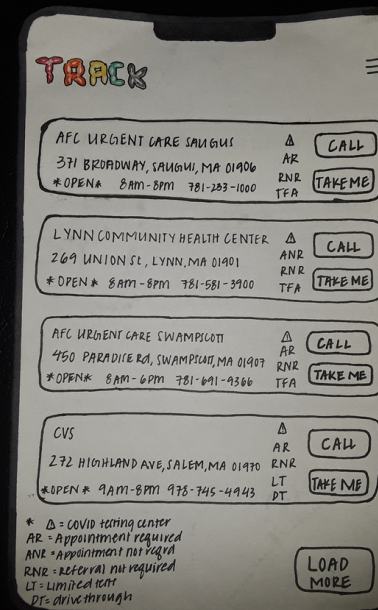 TRACK
AFC URGENT CARE SAUGUS
371 BROADWAY, SAUGUI, MA 01906
*OPEN* 8AM-8PM 781-233-1000
⚠
AR
RNR
TFA
CALL
TAKE ME
LYNN COMMUNITY HEALTH CENTER
269 UNION St, LYNN, MA 01901
*OPEN* 8AM-8PM 781-581-3900
⚠
ANR
RNR
TFA
CALL
TAKE ME
AFC URGENT CARE SWAMPSCOTT
450 PARADISE Rd, SWAMPSCOTT, MA 01907
*OPEN* 8AM-6PM 781-691-9366
⚠
AR
RNR
TFA
CALL
TAKE ME
CVS
272 HIGHLAND AVE, SALEM, MA 01970
*OPEN* 9AM-8PM 978-745-4943
⚠
AR
RNR
LT
DT
CALL
TAKE ME
* ⚠ = COVID testing center
AR = Appointment required
ANR = Appointment not reqrd
RNR = Referral not required
LT = Limited test
DT = drive through
LOAD
MORE